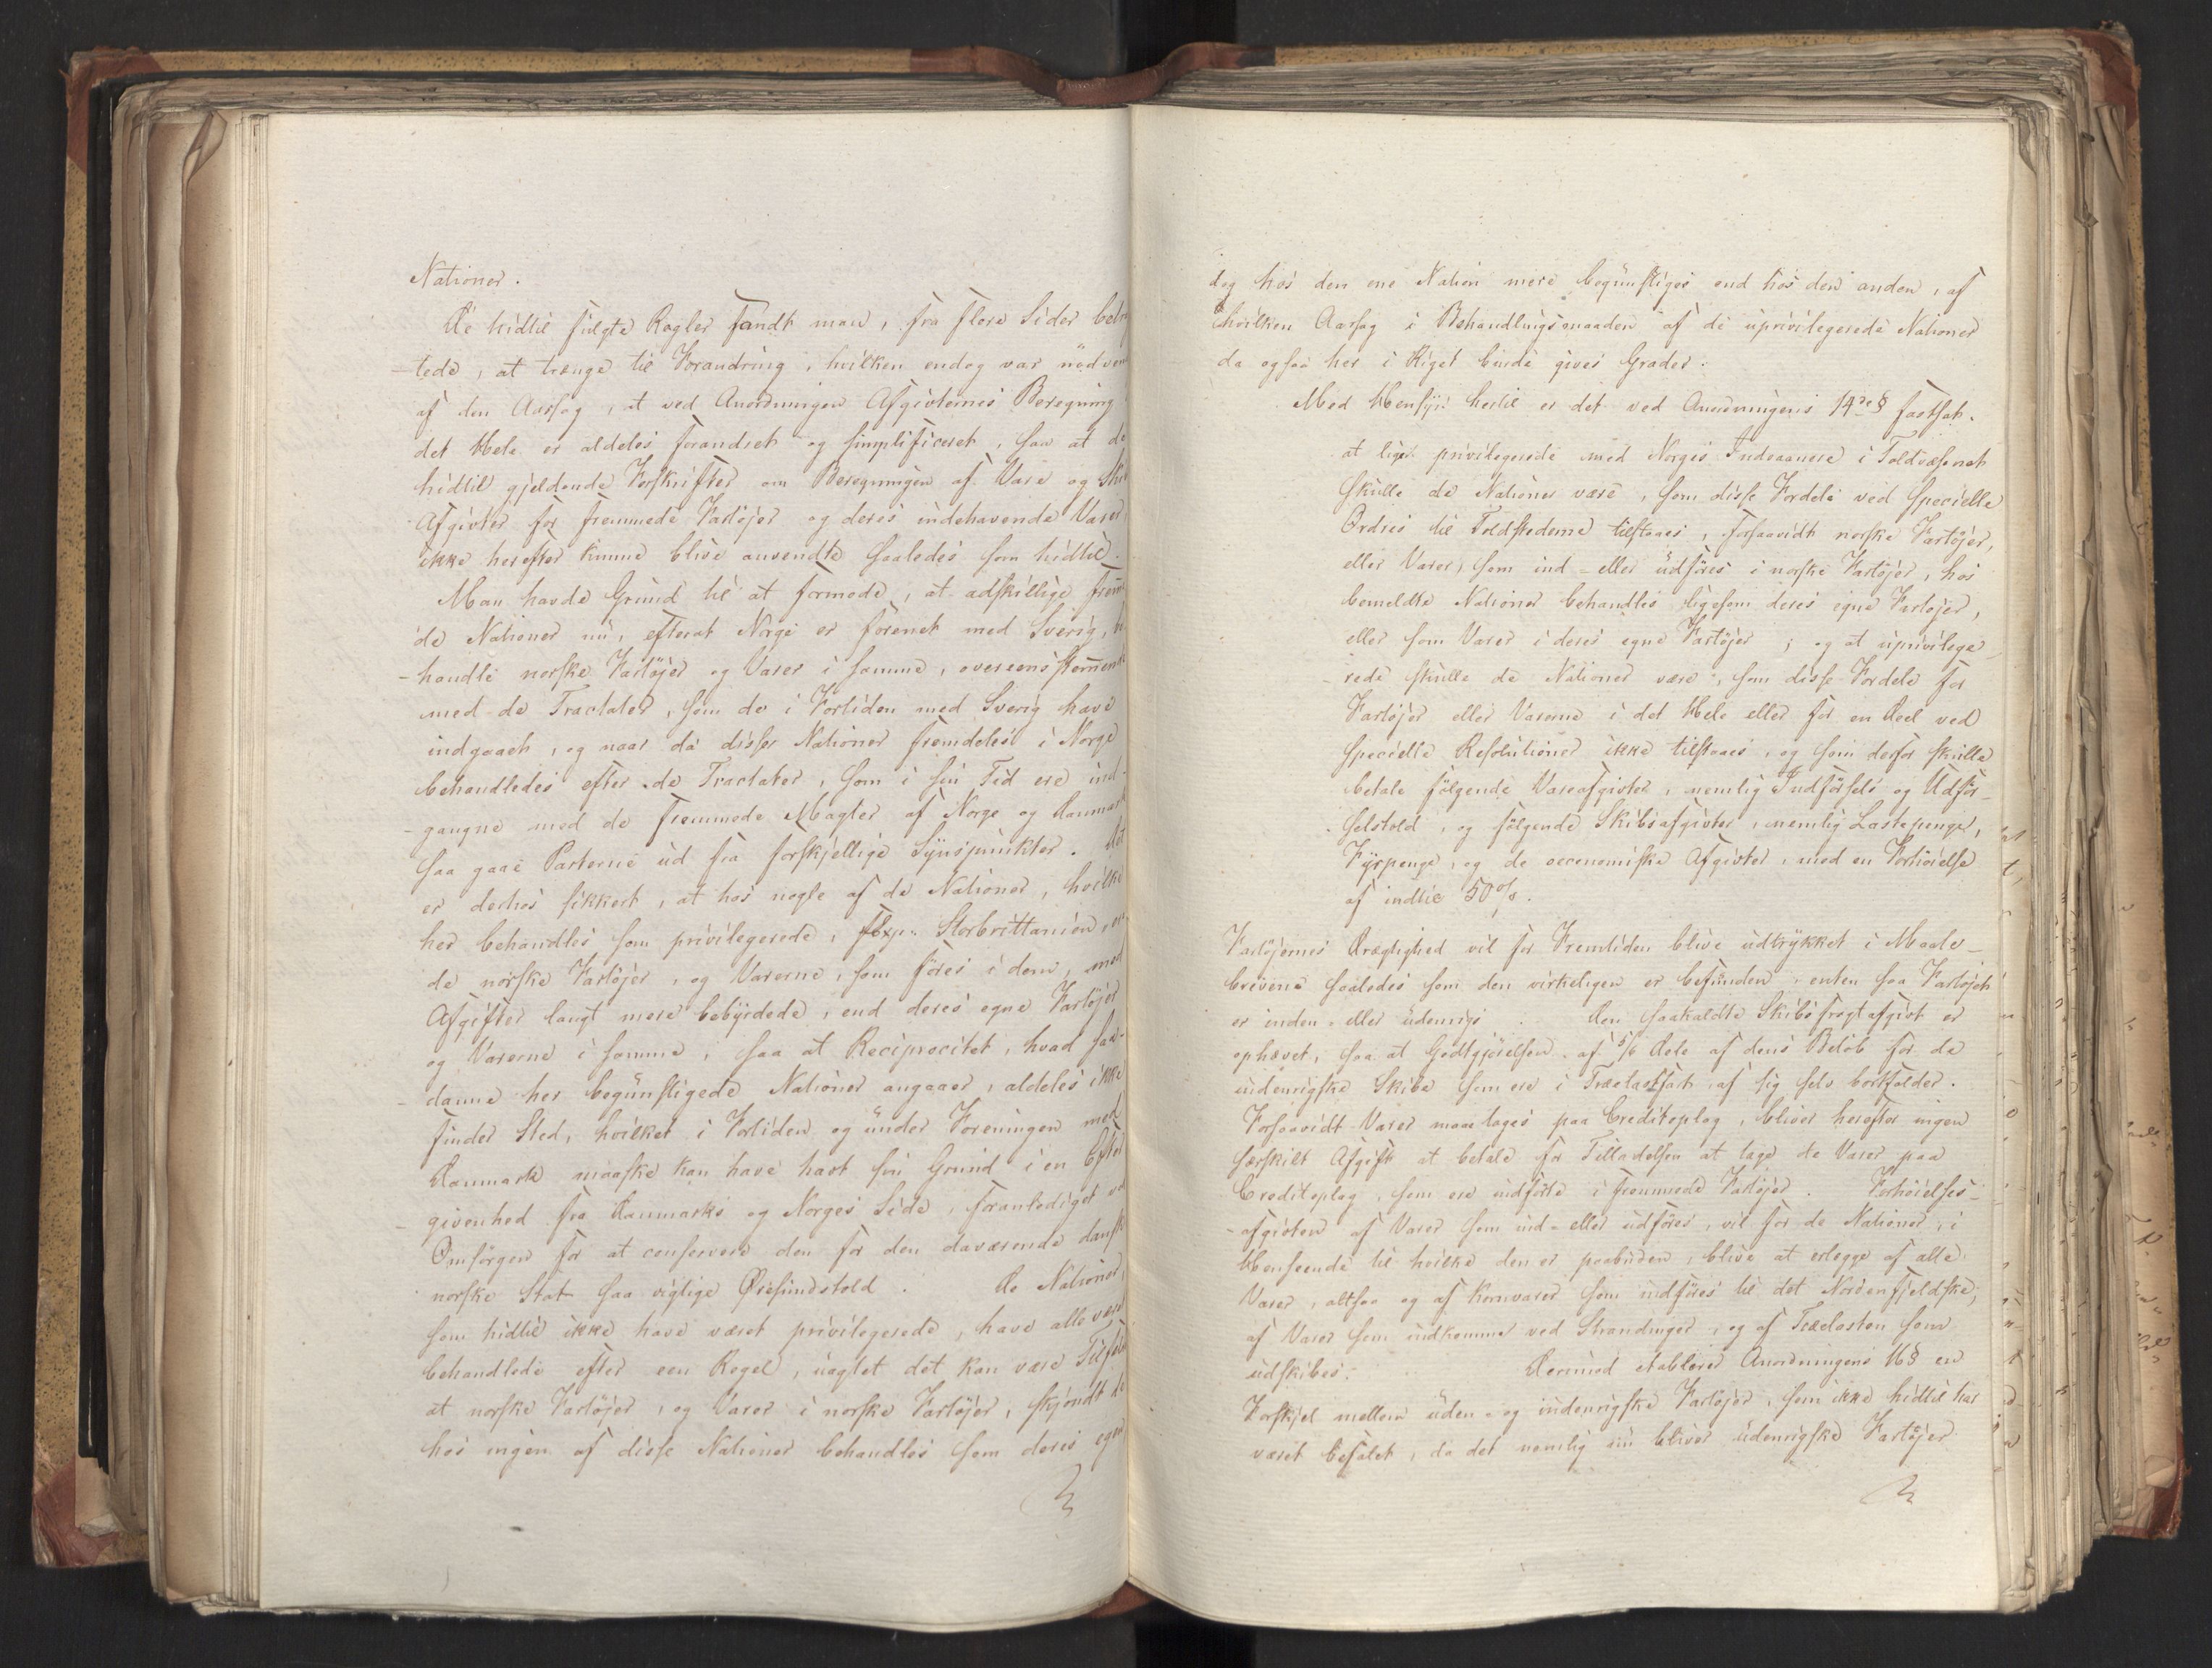 Nationer.
De hidtil fulgte Regler fandt man, fra flere Sider betrag
-tede, at trænge til Forandring, hvilken endog var nødven
af den Aarsag, at ved Anordningen Afgivternes Beregning
det Hele er aldeles forandret og simplificeret, saa at de
hidtil gjeldende Forskrifter om Beregningen af Vare og Ski
Afgivter for fremmede Fartøjer og deres indehavende Varer,
ikke herefter kunne blive anvendte saaledes som hidtil.
Man havde Grund til at formode, at adskillige frem̄
de Nationer nu, efterat Norge er forenet med Sverig, be
-handle norske Fartøjer og Varer i samme, overeensstem̄ende
med de Tractater, som de i Fortiden med Sverig have
indgaaet, og naar da disse Nationer fremdeles i Norge
behandledes efter de Tractater, som i sin Tid ere ind-
-gangne med de fremmede Magter af Norge og Danmark
saa gaae Parterne ud fra forskjellige Synspunkter. Det
er derhos sikkert, at hos nogle af de Nationer, hvilke
her behandles som privilegerede, f Exp. Storbrittanien, ere
de norske Fartøjer, og Varerne, som føres i dem, med
Afgifter langt mere bebyrdede, end deres egne Fartøjer
og Varerne i samme, saa at Reciprocitet, hvad saa-
-danne her begunstigede Nationer angaaer, aldeles ikke
finder Sted, hvilket i Fortiden og under Foreningen med
Danmark maaske kan have havt sin Grund i en Efter
-givenhed fra Danmarks og Norges Side, foranlediget ved
Omsorgen for at conservere den for den daværende dansk
norske Stat saa vigtige Øresundstold. De Nationer,
som hidtil ikke have været privilegerede, have alle været
behandlede efter een Regel, uagtet det kan være Tilfæl
at norske Fartøjer, og Varer i norske Fartøjer, skjøndt de
hos ingen af disse Nationer behandles som deres egne
dog hos den ene Nation mere begunstiges end hos den anden, af
hvilken Aarsag i Behandlingsmaaden af de uprivilegerede Nationer
da ogsaa her i Riget burde gives Grader.
Med Hensyn hertil er det ved Anordningens 14de § fastsat.
at liges privilegerede med Norges Indvaanere i Toldvæsenet
skulle de Nationer være, som disse Fordele ved specielle
Ordres til Toldstederne tilstaaes, forsaavidt norske Fartøjer,
eller Varer, som ind- eller udføres i norske Fartøjer, hos
bemeldte Nationer behandles ligesom deres egne Fartøjer,
eller som Varer i deres egne Fartøjer; og at uprivilege
-rede skulle de Nationer være, som disse Fordele for
Fartøjer eller Varerne i det Hele eller for en Deel ved
specielle Resolutioner ikke tilstaaes, og som derfor skulle
betale følgende Vareafgivter, nemlig Indførsels og Udfør-
selstold, og følgende Skibsafgivter, nemlig Lastepenge,
Fyrpenge, og de oeconomiske Afgivter, med en Forhøielse
af indtil 50%.
Fartøjernes Drægtighed vil for Fremtiden blive udtrykket i Maale-
brevene saaledes som den virkeligen er befunden, enten saa Fartøjet
er inden- eller udenrigs. Den saakaldte Skibsfragtafgivt er
ophævet, saa at Godtgjørelsen af 5/6 Dele af dens Beløb for de
indenrigske Skibe som ere i Trælastfart, af sig selv bortfalder.
Forsaavidt Varer maae tages paa Creditoplag, bliver herefter ingen
særskilt Afgift at betale for Tilladelsen at tage de Varer paa
Creditoplag, som ere indførte i fremmede Fartøjer. Forhøielses-
-afgivten af Varer som ind- eller udføres, vil for de Nationer, i
Henseende til hvilke den er paabuden, blive at erlægge af alle
Varer, altsaa og af Kornvarer som indføres til det Nordenfjeldske;
af Varer som indkomme ved Strandinger, og af Trælasten som
udskibes. Derimod etablerer Anordningens 16§ en
Forskjel mellem uden- og indenrigske Fartøjer, som ikke hidtil har
været befalet, da det nemlig nu bliver udenrigske Fartøjer